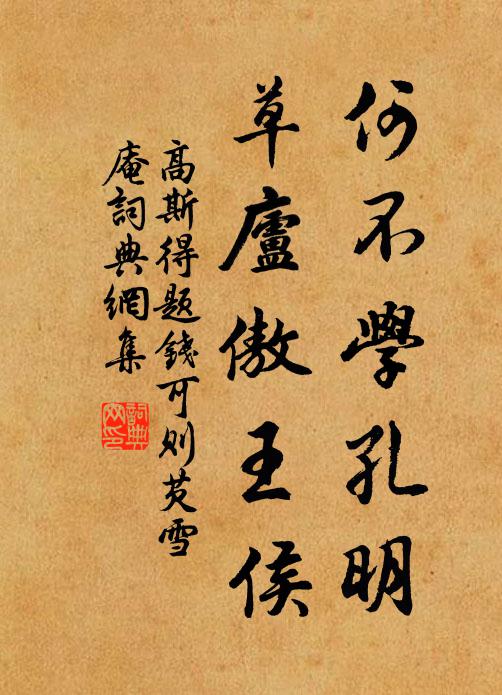 何不學孔明
草廬傲王侯
高斯得題錢可则芡雪
庵詞典網集
詞典網印